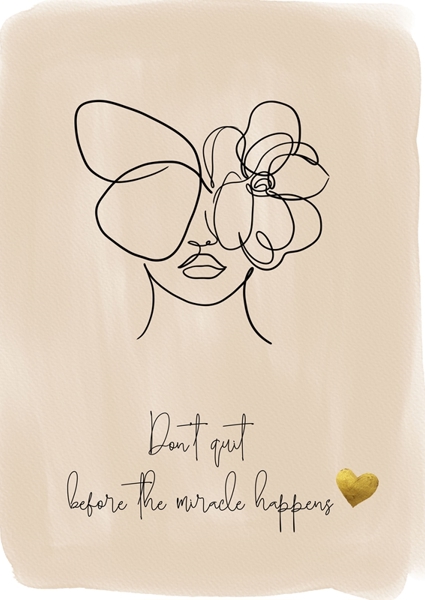 Don't quit
before the miracle happens